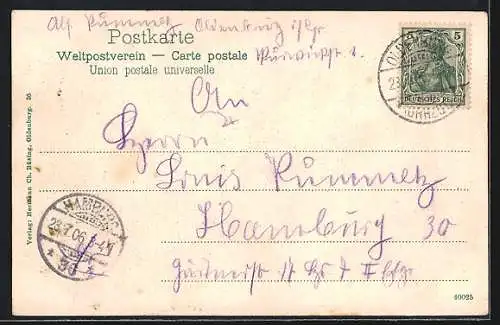 Alf. Kummetz Oldenburg i/Gr.
Postkarte
Weltpostverein — Carte postale
Union postale universelle
5
DEUTSCHES REICH
An
Herrn
Louis Kummetz
Hamburg 30
Gärtnerstr.
HAMBURG
23.7.06
* 30 *
Verlag: Hermann Ch. Büsing, Oldenburg. 36
40025